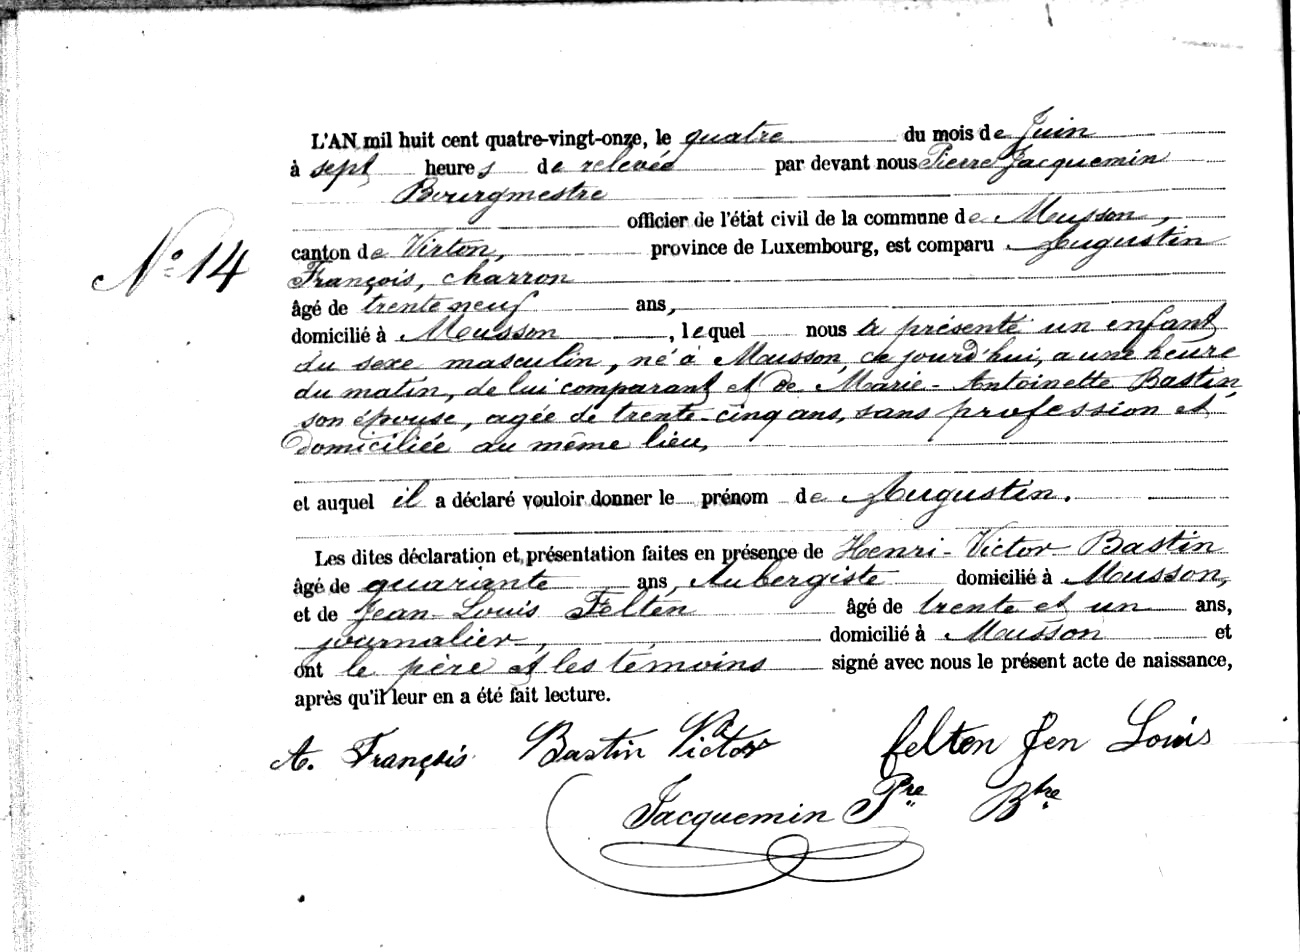 L'AN mil huit cent quatre-vingt-onze, le quatre du mois de Juin
à sept heures de relevée par devant nous Pierre Jacquemin
Bourgmestre
officier de l'état civil de la commune de Musson,
N° 14
canton de Virton, province de Luxembourg, est comparu Augustin
François, charron
âgé de trente neuf ans,
domicilié à Musson, lequel nous a présenté un enfant
du sexe masculin, né à Musson, ce jourd'hui, a une heure
du matin, de lui comparant et de Marie-Antoinette Bastin
son épouse, agée de trente-cinq ans, sans profession et
domiciliée au même lieu,
et auquel il a déclaré vouloir donner le prénom de Augustin.
Les dites déclaration et présentation faites en présence de Henri-Victor Bastin
âgé de quarante ans, Aubergiste domicilié à Musson,
et de Jean-Louis Felten âgé de trente et un ans,
journalier, domicilié à Musson et
ont le père et les témoins signé avec nous le présent acte de naissance,
après qu'il leur en a été fait lecture.
A. François Bastin Victor felten Jen Louis
Jacquemin Pre Btre